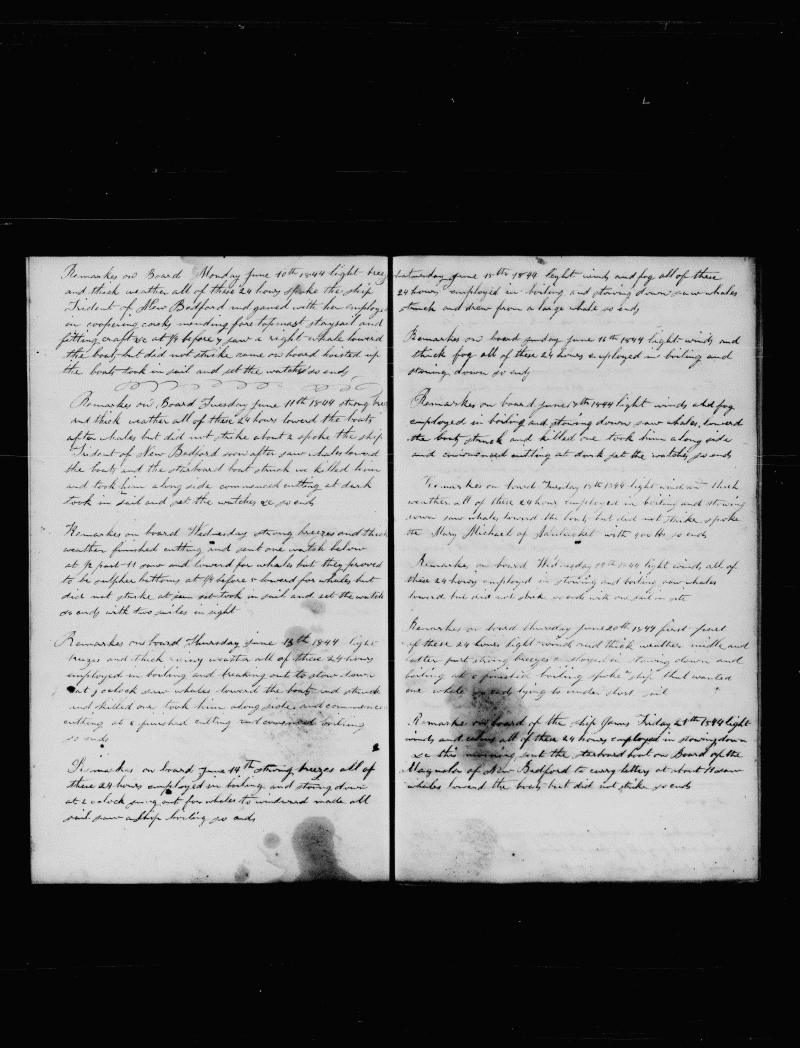 Remarkes on Board Monday June 10th 1844 light breez
and thick weather all of these 24 hours spoke the ship
Trident of New Bedford and gamed with her employe
in coopering casks mending fore topmast staysail and
fitting craft &c at ¼ before 7 saw a right whale lowerd
the boats but did not strike came on board hoisted up
the boats took in sail and set the watches so ends
Remarkes on Board Tuesday June 11th 1844 strong bree
and thick weather all of these 24 hours lowerd the boats
after whales but did not strike about 2 spoke the ship
Trident of New Bedford soon after saw whales lowerd
the boats and the starboard boat struck we killed him
and took him along side commenced cutting at dark
took in sail and set the watches &c so ends
Remarkes on board Wednesday strong breezes and thick
weather finished cutting and sent one watch below
at ½ past 11 saw and lowerd for whales but they proved
to be sulpher bottoms at ¼ before lowerd for whales but
did not strike at sun set took in sail and set the watch
so ends with two sailes in sight
Remarkes on board Thursday June 13th 1844 light
brezes and thick rainy weather all of these 24 hours
employed in boiling and breaking out to stow down
at oclock saw whales lowerd the boats and struck
and killed one took him along side and commence
cutting at 6 finished cutting and comenced boiling
so ends
Remarkes on board June 14th strong brezes all of
these 24 hours employed in boiling and stowing down
at 2 oclock sung out for whales to windward made all
sail saw a ship boiling so ends
Saturday June 15th 1844 light winds and fog all of these
24 hours employed in boiling and stowing down saw whales
struck and drew from a large whale so ends
Remarkes on board sunday June 16th 1844 light winds and
thick fog all of these 24 hours employed in boiling and
stowing down so ends
Remarkes on board June 17th 1844 light winds and fog
employed in boiling and stowing down saw whales lowerd
the boats struck and killed one took him along side
and commenced cutting at dark set the watches so ends
Remarkes on board Tuesday 18th 1844 light winds and thick
weather all of these 24 hour employed in boiling and stowing
down saw whales lowerd the boats but did not strike spoke
the Mary Michael of Nantucket with 400 bbs so ends
Remarkes on board Wednesday 19th 1844 light winds all of
these 24 hours employed in stowing and boiling saw whales
lowerd but did not strike so ends with one sail in site
Remarkes on board thursday June 20th 1844 first part
of these 24 hours light winds and thick weather middle and
latter part strong breezes employed in stowing down and
boiling at 6 finished boiling spoke ship that wanted
one whale so ends lying to under short sail
Remarkes on board of the ship Janus Friday 21th 1844 light
winds and calms all of these 24 hours employed in stowing down
&c this morning sent the starboard boat on Board of the
Magnolia of New Bedford to carry letters at about 11 saw
whales lowerd the boats but did not strike so ends